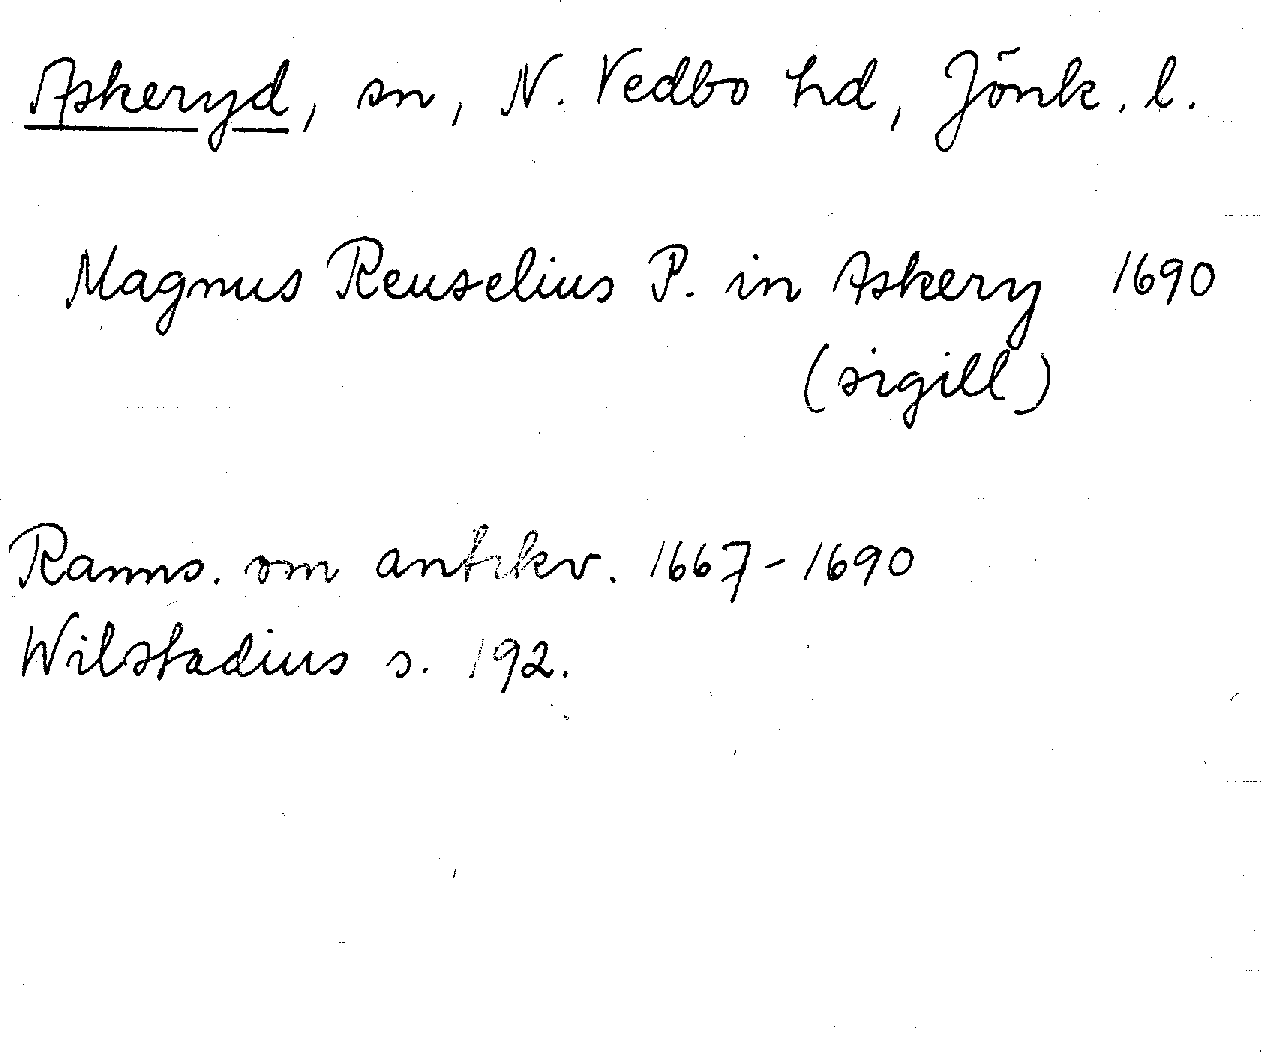 Askeryd, sn, N. Vedbo hd, Jönk. l.
Magnus Reuselius P. in Askery 1690
(sigill)
Ranns. om antikv. 1667-1690
Wilstadius s. 192.